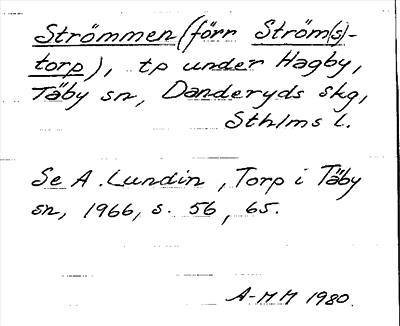 Strömmen (förr Ström(s)-
torp), tp under Hagby,
Täby sn, Danderyds skg,
Sthlms l.
Se A. Lundin, Torp i Täby
sn, 1966, s. 56, 65.
A-MM 1980.